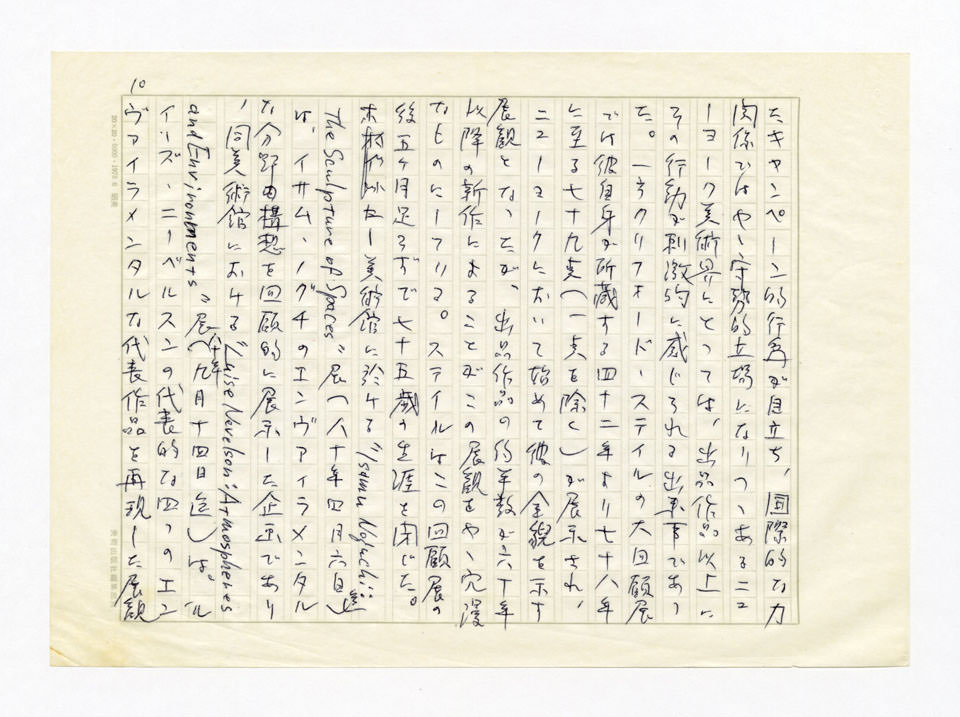 10
たキャンペーン的行為が目立ち、国際的な力
関係ではやゝ守勢的立場になりつゝあるニュ
ーヨーク美術界にとっては、出品作品以上に
その行動が刺激的に感じられる出来事であっ
た。一方クリフォード・スティルの大回顧展
では彼自身が所蔵する四十二年より七十八年
に至る七十九点(一点を除く)が展示され、
ニューヨークにおいて始めて彼の全貌を示す
展観となったが、出品作品の約半数が六十年
以降の新作によることがこの展観をやゝ冗漫
なものにしている。スティルはこの回顧展の
後五ヶ月足らずで七十五歳の生涯を閉じた。
美術館に於ける"Isamu Noguchi:
The Sculpture of Spaces"展(八十年四月六日迄)
は、イサム・ノグチのエンヴァイラメンタル
な分野の構想を回顧的に展示した企画であり
、同美術館における"Luise Nevelson: Atmospheres
and Environments"展(八十年九月十四日迄)は。ル
イーズ・ニーベルスンの代表的な四つのエン
ヴァイラメンタルな代表作品を再現した展観